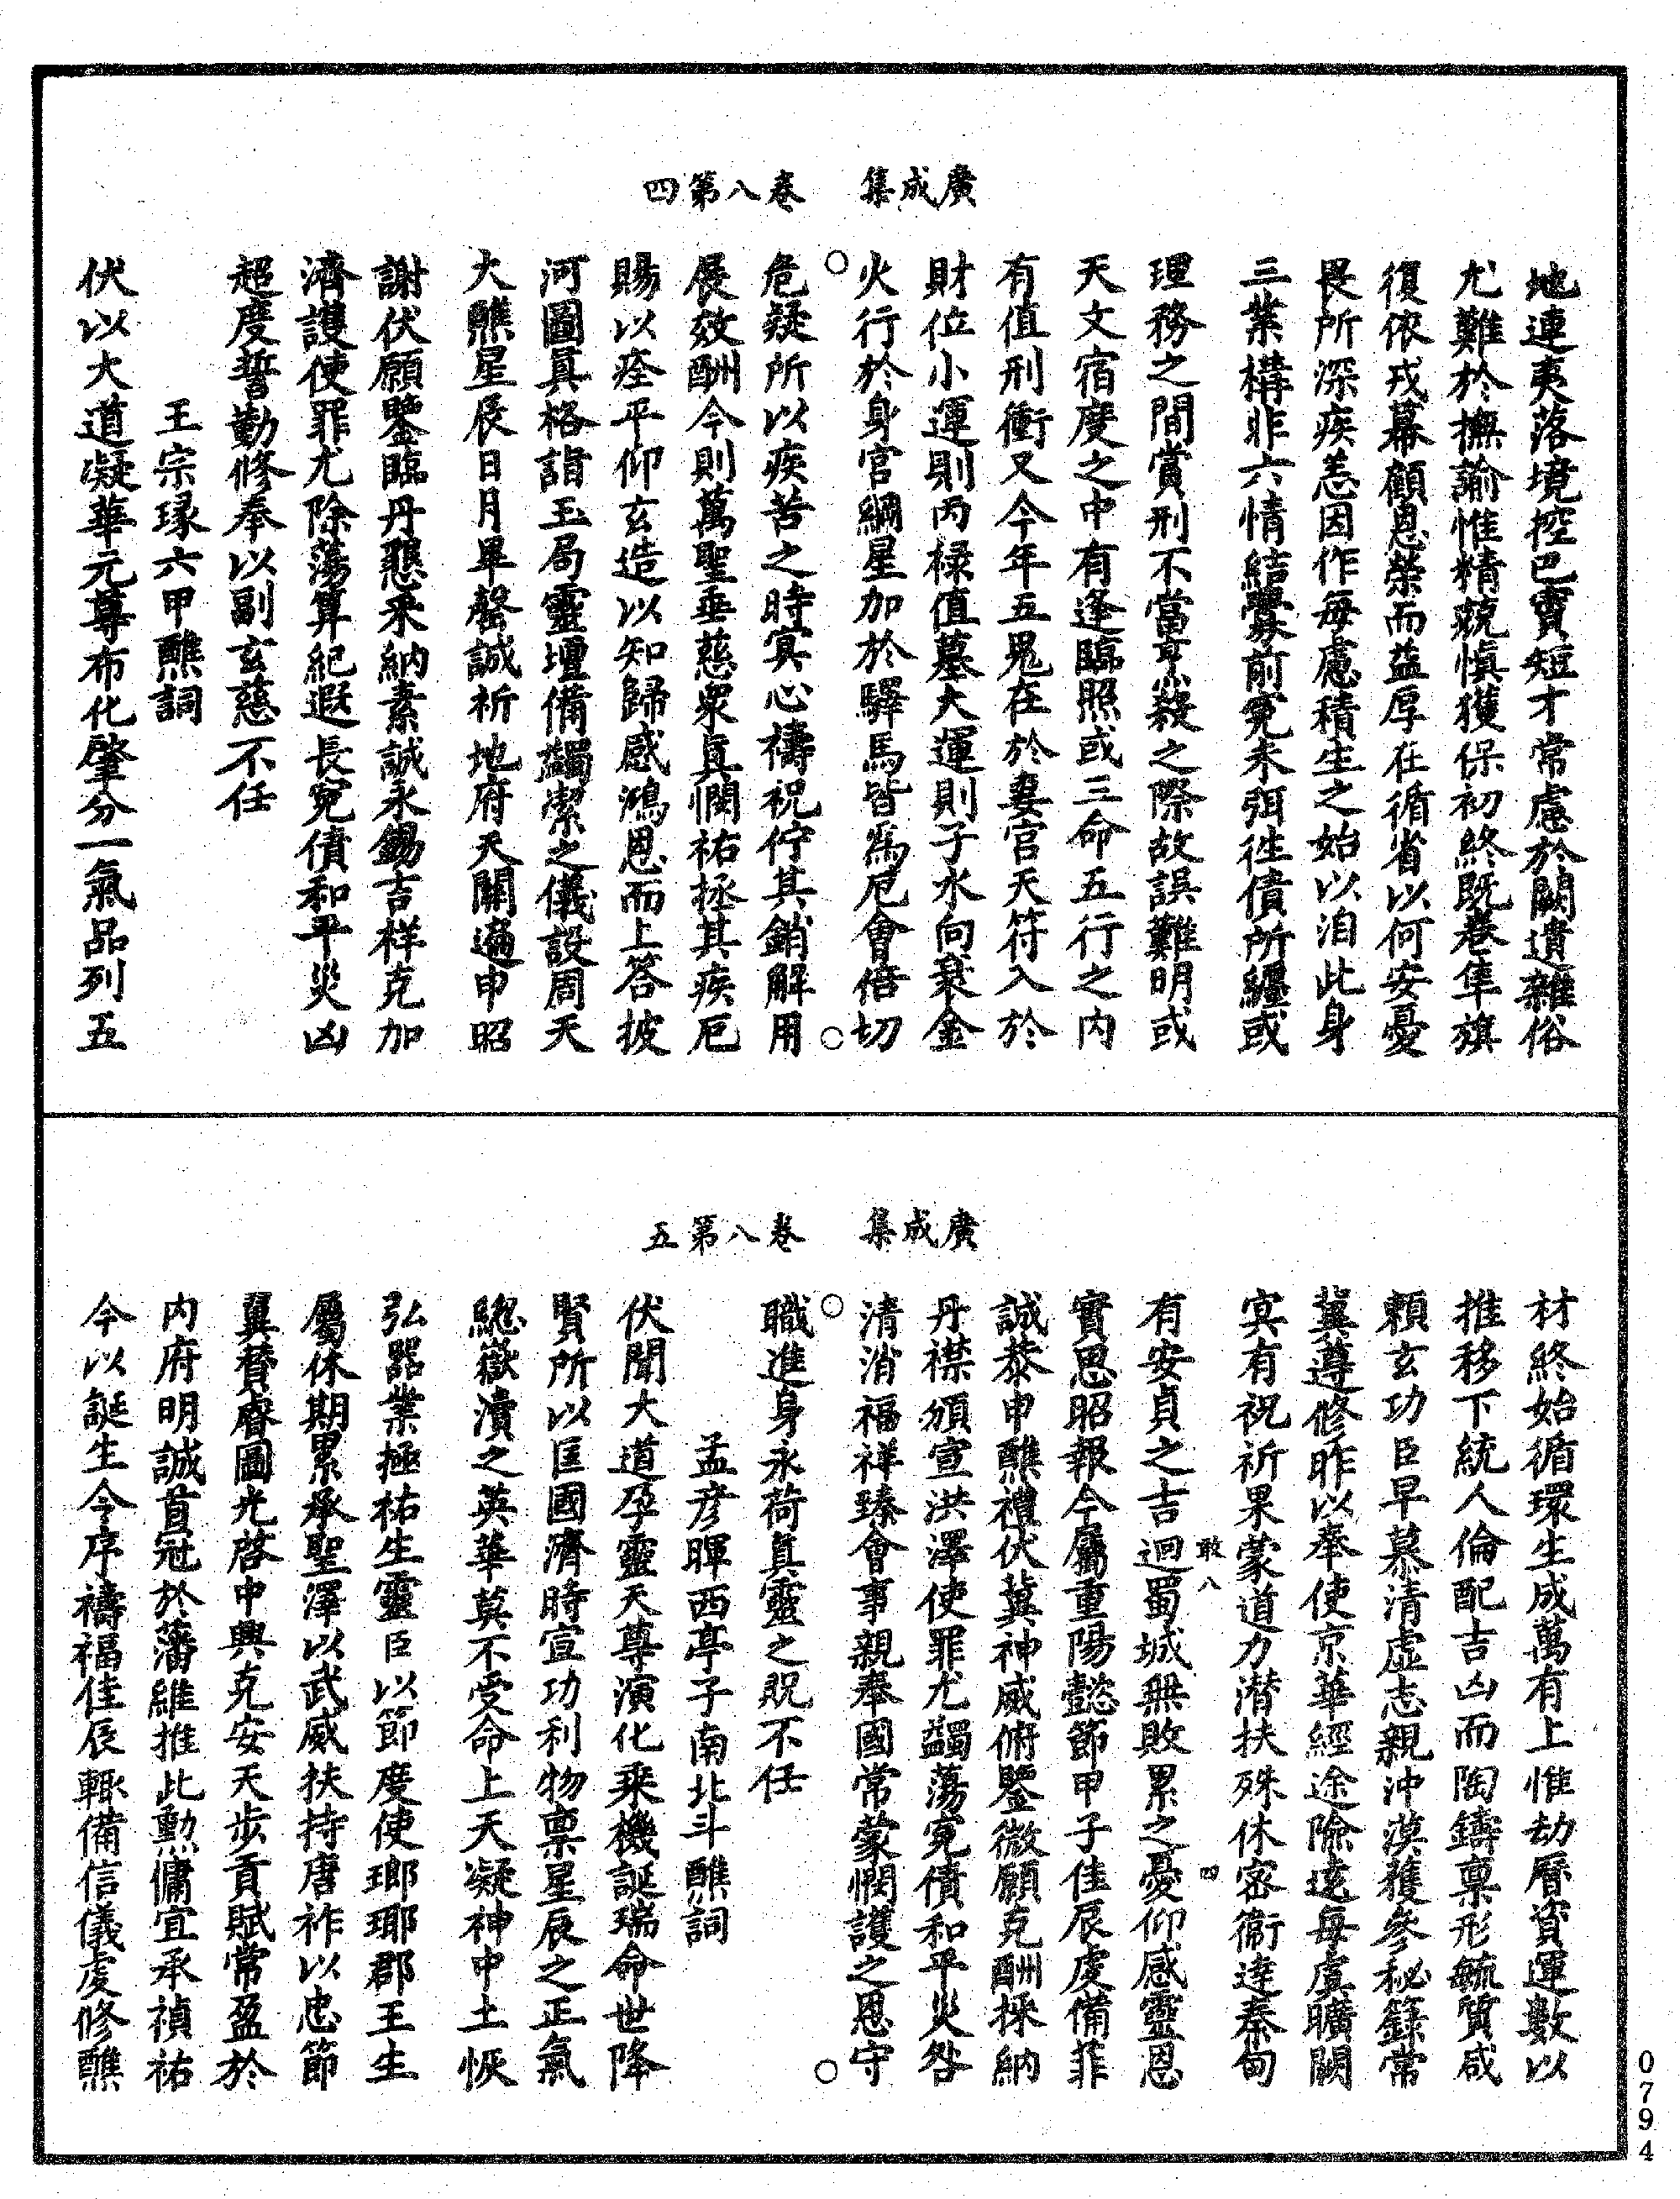 廣成集 卷八第四
地連夷落境控巴賨短才常慮於闕遺雜俗
尤難於撫諭惟精兢慎獲保初終旣卷隼旗
復依戎幕顧恩榮而益厚在循省以何安憂
畏所深疾恙因作每慮積生之始以洎此身
三業構非六情結釁前寃未弭徃債所纏或
理務之間賞刑不當章奏殺之際故誤難明或
天文宿度之中有逢臨照或三命五行之内
有值刑衝又今年五鬼在於妻官天符入於
財位小運則丙祿值墓大運則子水向衰金
火行於身官綱星加於驛馬皆爲厄會倍切
危疑所以疾苦之時冥心禱祝佇其銷解用
展效酬今則萬聖垂慈衆眞憫祐拯其疾厄
賜以痊平仰玄造以知歸感鴻恩而上答披
河圖眞格詣玉局靈壇備蠲潔之儀設周天
大醮星辰日月畢罄誠祈地府天關遍申昭
謝伏願鑒臨丹懇采納素誠永錫吉祥克加
濟護使罪尤除蕩算紀遐長寃債和平災凶
超度誓勤修奉以副玄慈不任
王宗瑑六甲醮詞
伏以大道凝華元尊布化肇分一氣品列五
廣成集 卷八第五
材終始循環生成萬有上惟劫曆資運數以
推移下統人倫配吉凶而陶鑄稟形毓質咸
賴玄功臣早慕清虛志親沖漠獲參秘籙常
冀遵修昨以奉使京華經途險遠每虞曠闕
冥有祝祈果蒙道力潛扶殊休密衞達秦甸
有安貞之吉迴蜀城無敗累之憂仰感靈恩
敢八 四
實思昭報今屬重陽懿節甲子佳辰虔備菲
誠恭申醮禮伏冀神威俯鑒微願克酬採納
丹襟頒宣洪澤使罪尤蠲蕩寃債和平災咎
清消福祥臻會事親奉國常蒙憫護之恩守
職進身永荷眞靈之貺不任
孟彥暉西亭子南北斗醮詞
伏聞大道孕靈天尊演化乘機誕瑞命世降
賢所以匡國濟時宣功利物稟星辰之正氣
緫嶽瀆之英華莫不受命上天凝神中土恢
弘器業極祐生靈臣以節度使瑯琊郡王生
屬休期累承聖澤以武威扶持唐祚以忠節
翼贊睿圖光啓中興克安天步貢賦常盈於
内府明誠首冠於藩維推此勲傭宜承禎祐
今以誕生令序禱福佳辰輙備信儀虔修醮
0794